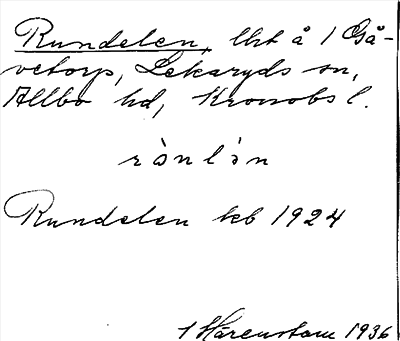 Rundelen, lht å 1 Gå-
vetorp, Lekaryds sn,
Allbo hd, Kronobs l.
rὰnlὰn
Rundelen kb 1924
1 Härenstam 1936